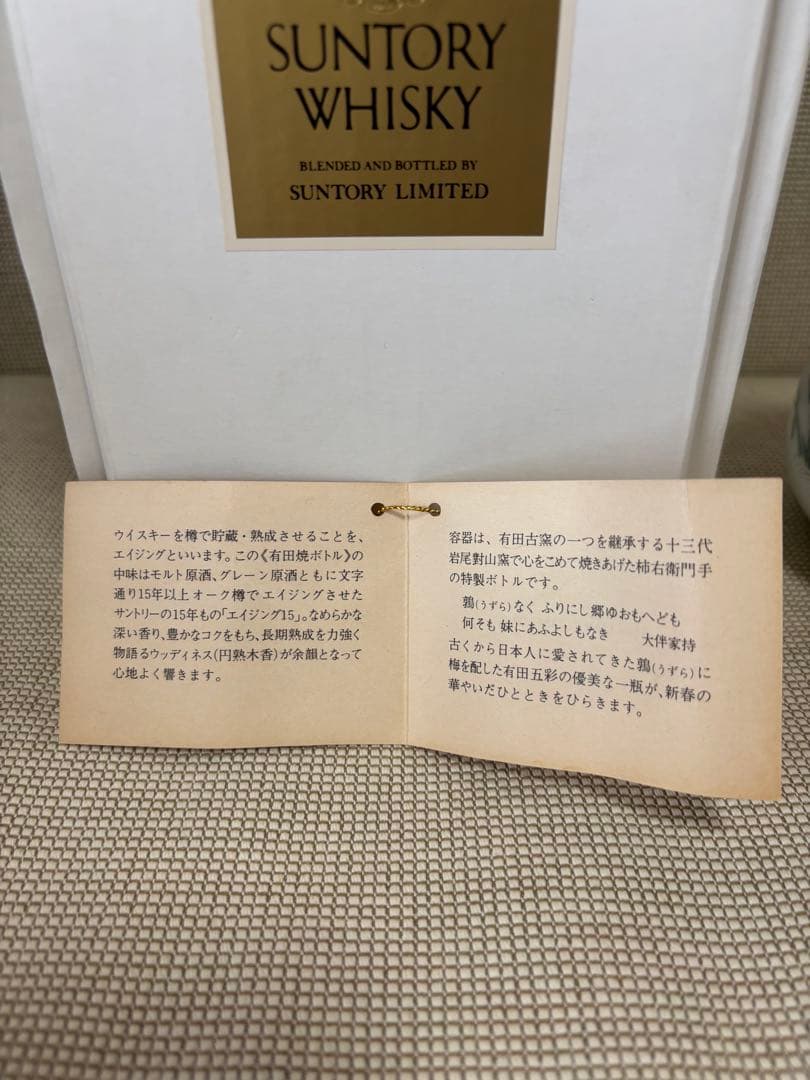 SUNTORY
WHISKY
BLENDED AND BOTTLED BY
SUNTORY LIMITED
ウイスキーを樽で貯蔵・熟成させることを、
エイジングといいます。この《有田焼ボトル》の
中味はモルト原酒、グレーン原酒ともに文字
通り15年以上オーク樽でエイジングさせた
サントリーの15年もの「エイジング15」。なめらかな
深い香り、豊かなコクをもち、長期熟成を力強く
物語るウッディネス(円熟木香)が余韻となって
心地よく響きます。
容器は、有田古窯の一つを継承する十三代
岩尾對山窯で心をこめて焼きあげた柿右衛門手
の特製ボトルです。
鶉(うずら)なく ふりにし郷ゆおもへども
何そも 妹にあふよしもなき 大伴家持
古くから日本人に愛されてきた鶉(うずら)に
梅を配した有田五彩の優美な一瓶が、新春の
華やいだひとときをひらきます。